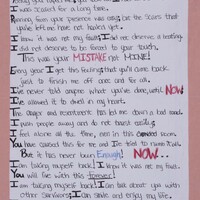 was scared for a long time.
Running from your presence was easy, but the scars that
you've left me have not healed yet.
I know it was not my fault, I did not deserve a beating.
I did not deserve to be forced to your touch,
This was your MISTAKE not MINE!
Every year I get this feeling that you'll come back
to finish me off once and for all.
I've never told anyone what you've done, until NOW
I've allowed it to dwell in my heart.
The anger and resentment has led me down a bad road
I push people away and do not trust easily.
I feel alone all the time, even in this crowded room.
You have caused this for me and I've tried to
But it has never been Enough! NOW..
I am taking myself back, I know it was not my fault.
You will live with this forever!
I am taking myself back! I can talk about you with
other survivors, I can smile and enjoy my life.